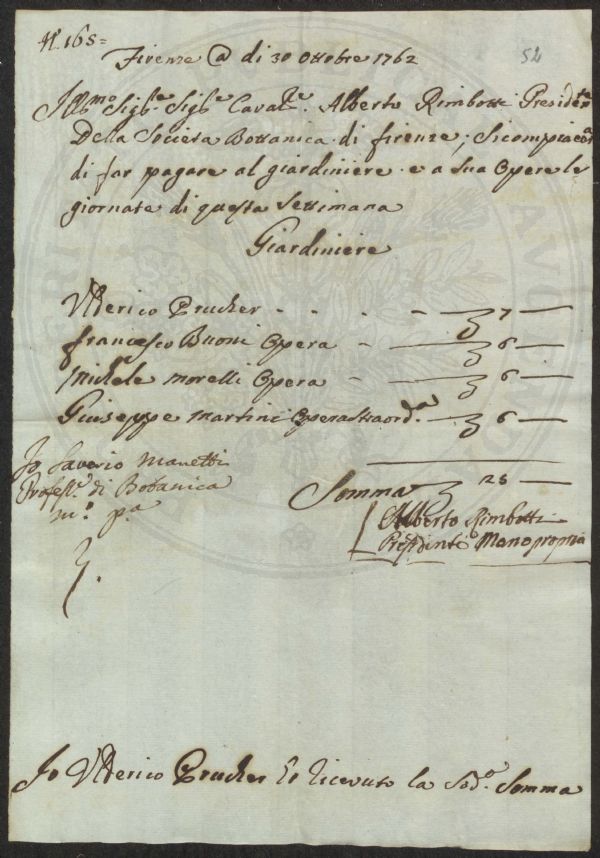 N. 165=
52
Firenze @ di 30 Ottobre 1762
Ill:mo Sigr.e Sigr.e Caval.re Alberto Rimbotti Presidte
Della Società Bottanica di firenze; Si compiacerà
di far pagare al giardiniere e a sua Opere le
giornate di questa Settimana
Giardiniere
Ulderico Prucker - - - 7 —
francesco Buoni Opera - 6 —
Michele Morelli Opera - 6 —
Giuseppe Martini Opera straord.a 6 —
Somma 25 —
Io Saverio Manetti
Profess.e di Botanica
m.o p.a
Alberto Rimbotti
Presidente Manopropria
Io Ulderico Prucker ho ricevuto la Sod.a Somma